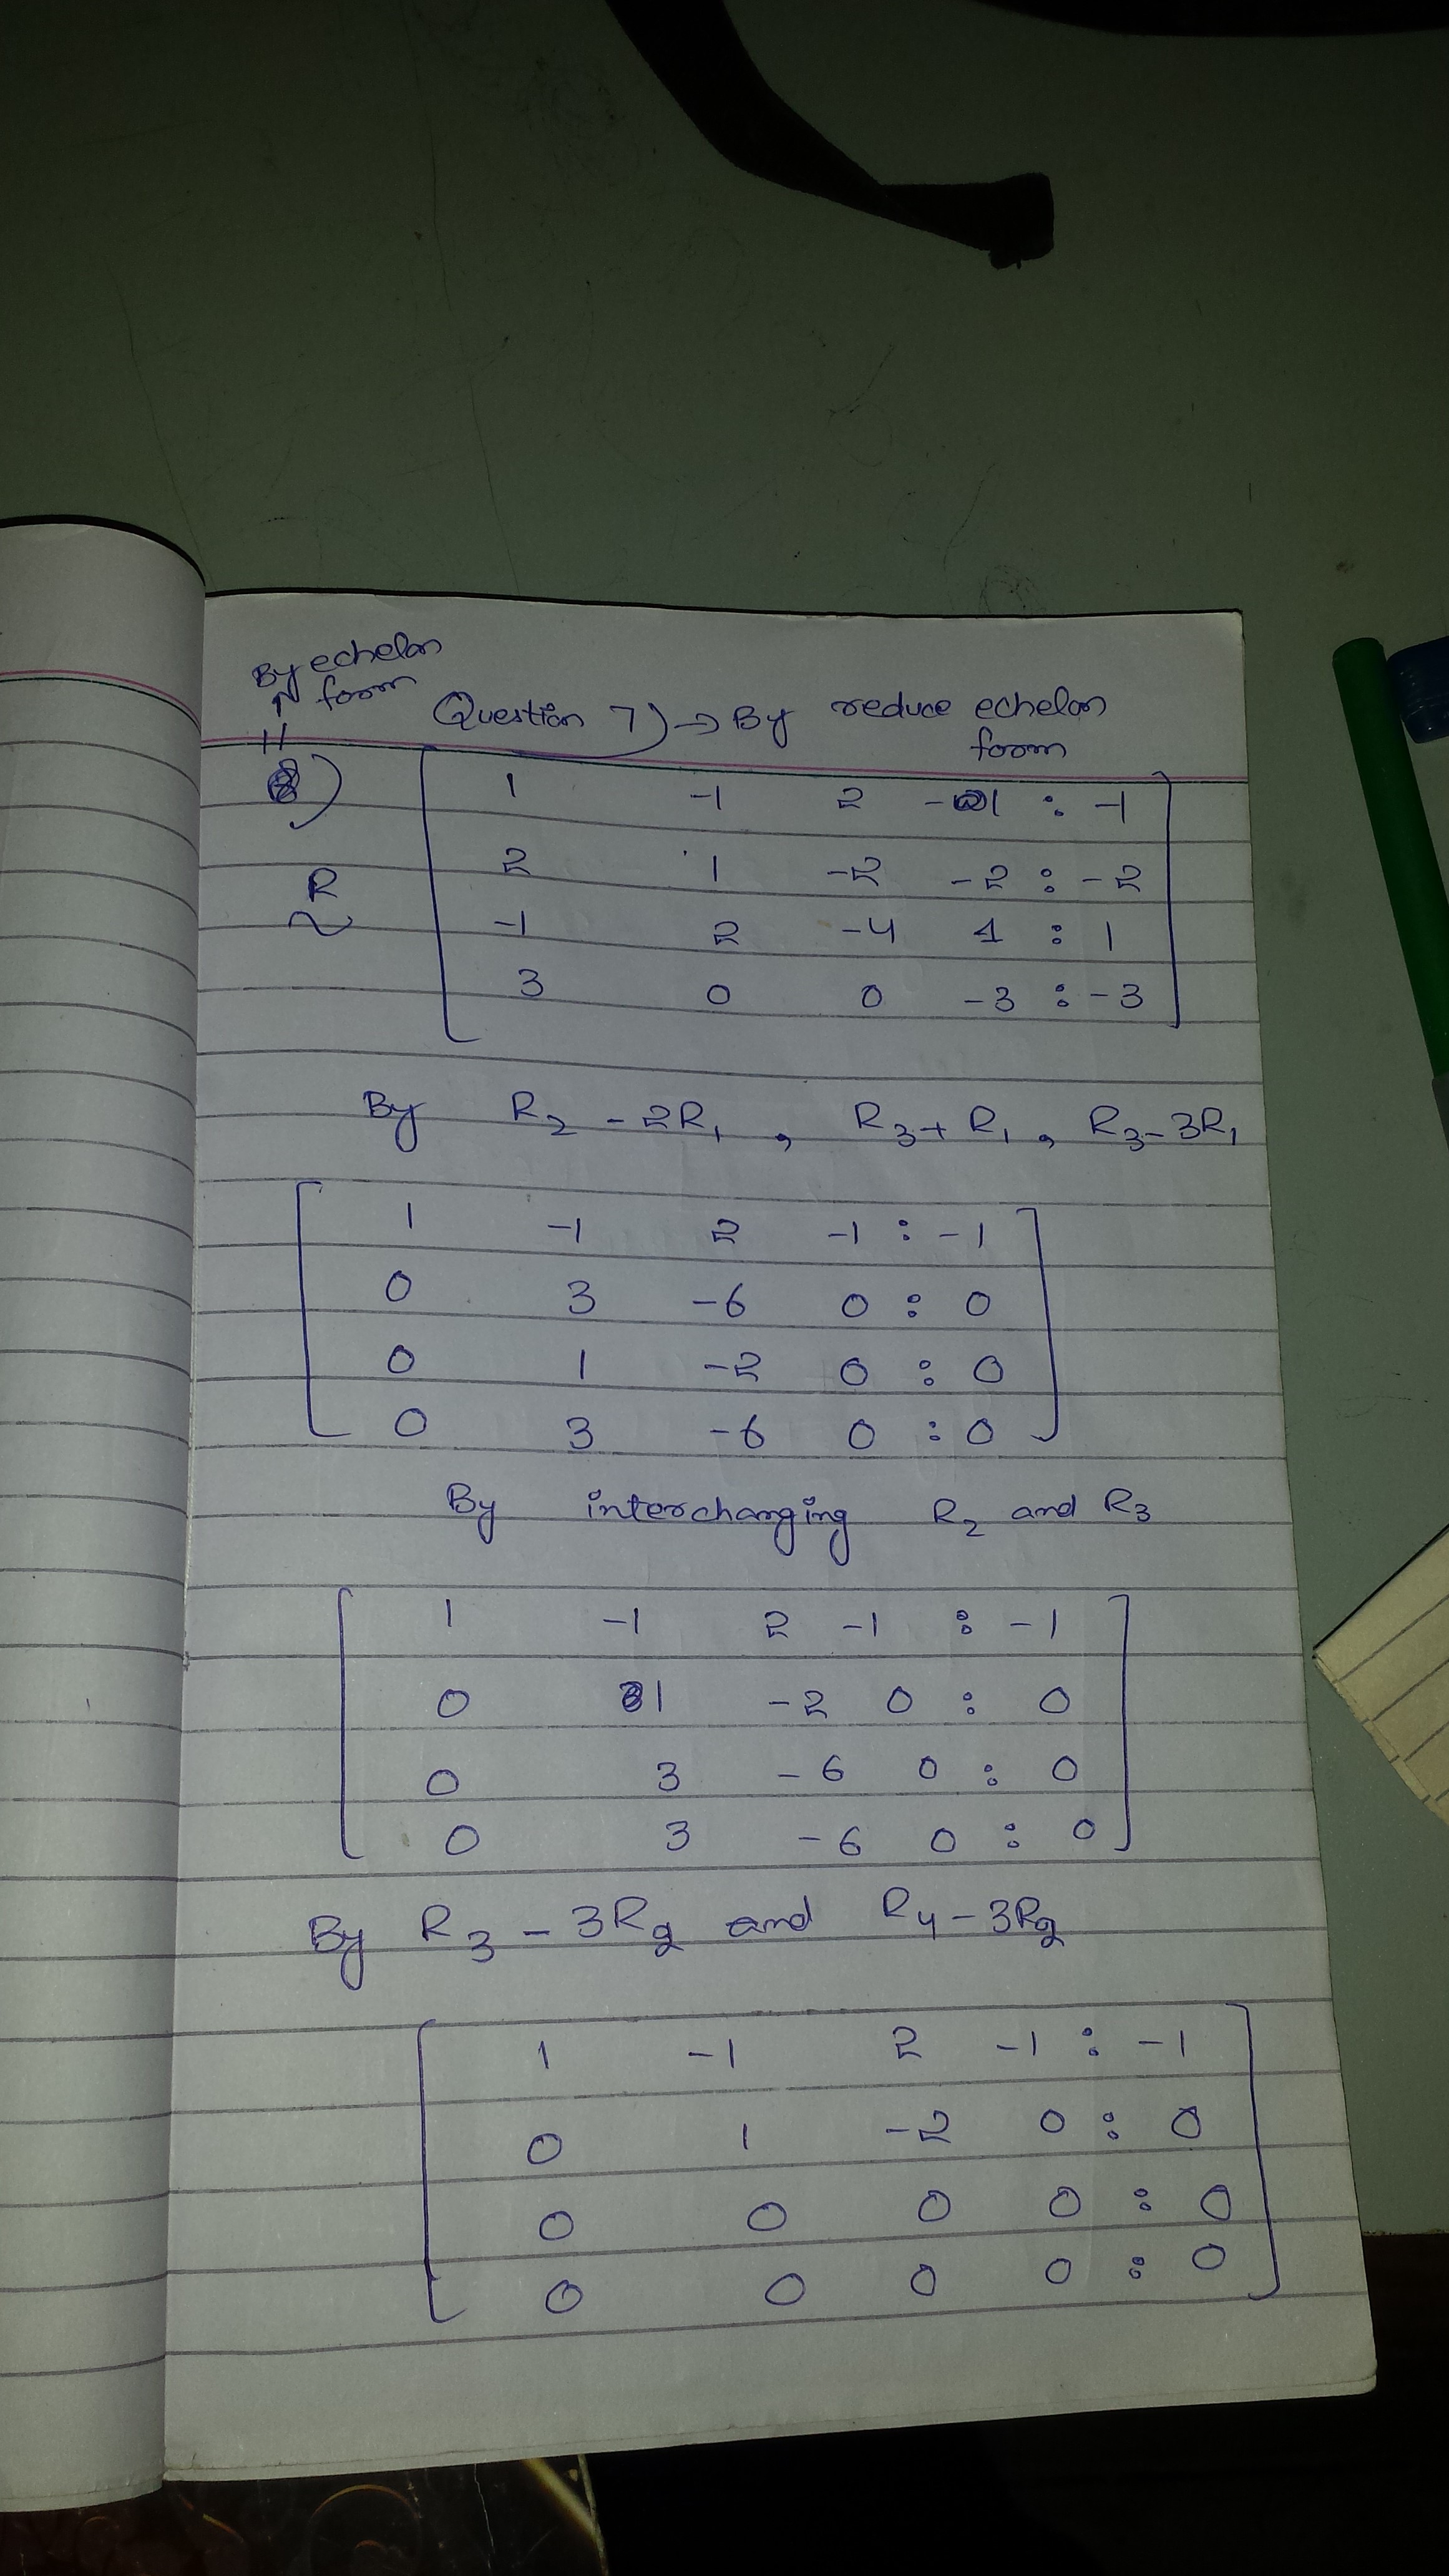 By echelon
form
Question 7) → By reduce echelon
form
)
1 -1 2 -1 : -1
2 1 -2 -2 : -2
R
~
-1 2 -4 1 : 1
3 0 0 -3 : -3
By R2 - 2R1 , R3 + R1 , R3 - 3R1
1 -1 2 -1 : -1
0 3 -6 0 : 0
0 1 -2 0 : 0
0 3 -6 0 : 0
By interchanging R2 and R3
1 -1 2 -1 : -1
0 1 -2 0 : 0
0 3 -6 0 : 0
0 3 -6 0 : 0
By R3 - 3R2 and R4 - 3R2
1 -1 2 -1 : -1
0 1 -2 0 : 0
0 0 0 0 : 0
0 0 0 0 : 0